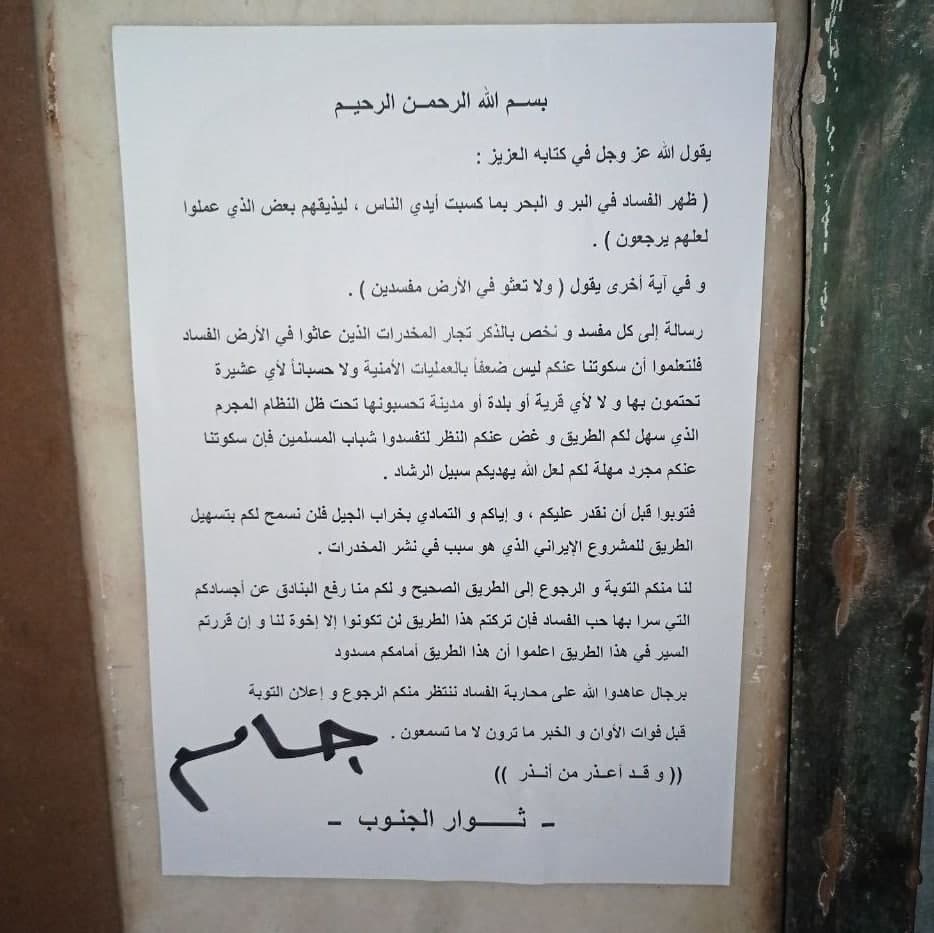 بســم الله الرحمــن الرحيــم
يقول الله عز وجل في كتابه العزيز :
( ظهر الفساد في البر و البحر بما كسبت أيدي الناس ، ليذيقهم بعض الذي عملوا
لعلهم يرجعون ) .
و في آية أخرى يقول ( ولا تعثو في الأرض مفسدين ) .
رسالة إلى كل مفسد و نخص بالذكر تجار المخدرات الذين عاثوا في الأرض الفساد
فلتعلموا أن سكوتنا عنكم ليس ضعفاً بالعمليات الأمنية ولا حسباناً لأي عشيرة
تحتمون بها و لا لأي قرية أو بلدة أو مدينة تحسبونها تحت ظل النظام المجرم
الذي سهل لكم الطريق و غض عنكم النظر لتفسدوا شباب المسلمين فإن سكوتنا
عنكم مجرد مهلة لكم لعل الله يهديكم سبيل الرشاد .
فتوبوا قبل أن نقدر عليكم ، و إياكم و التمادي بخراب الجيل فلن نسمح لكم بتسهيل
الطريق للمشروع الإيراني الذي هو سبب في نشر المخدرات .
لنا منكم التوبة و الرجوع إلى الطريق الصحيح و لكم منا رفع البنادق عن أجسادكم
التي سرا بها حب الفساد فإن تركتم هذا الطريق لن تكونوا إلا إخوة لنا و إن قررتم
السير في هذا الطريق اعلموا أن هذا الطريق أمامكم مسدود
برجال عاهدوا الله على محاربة الفساد ننتظر منكم الرجوع و إعلان التوبة
قبل فوات الأوان و الخبر ما ترون لا ما تسمعون .
جاسم
(( و قــد أعــذر من أنــذر ))
ـ ثـــــوار الجنـوب ـ